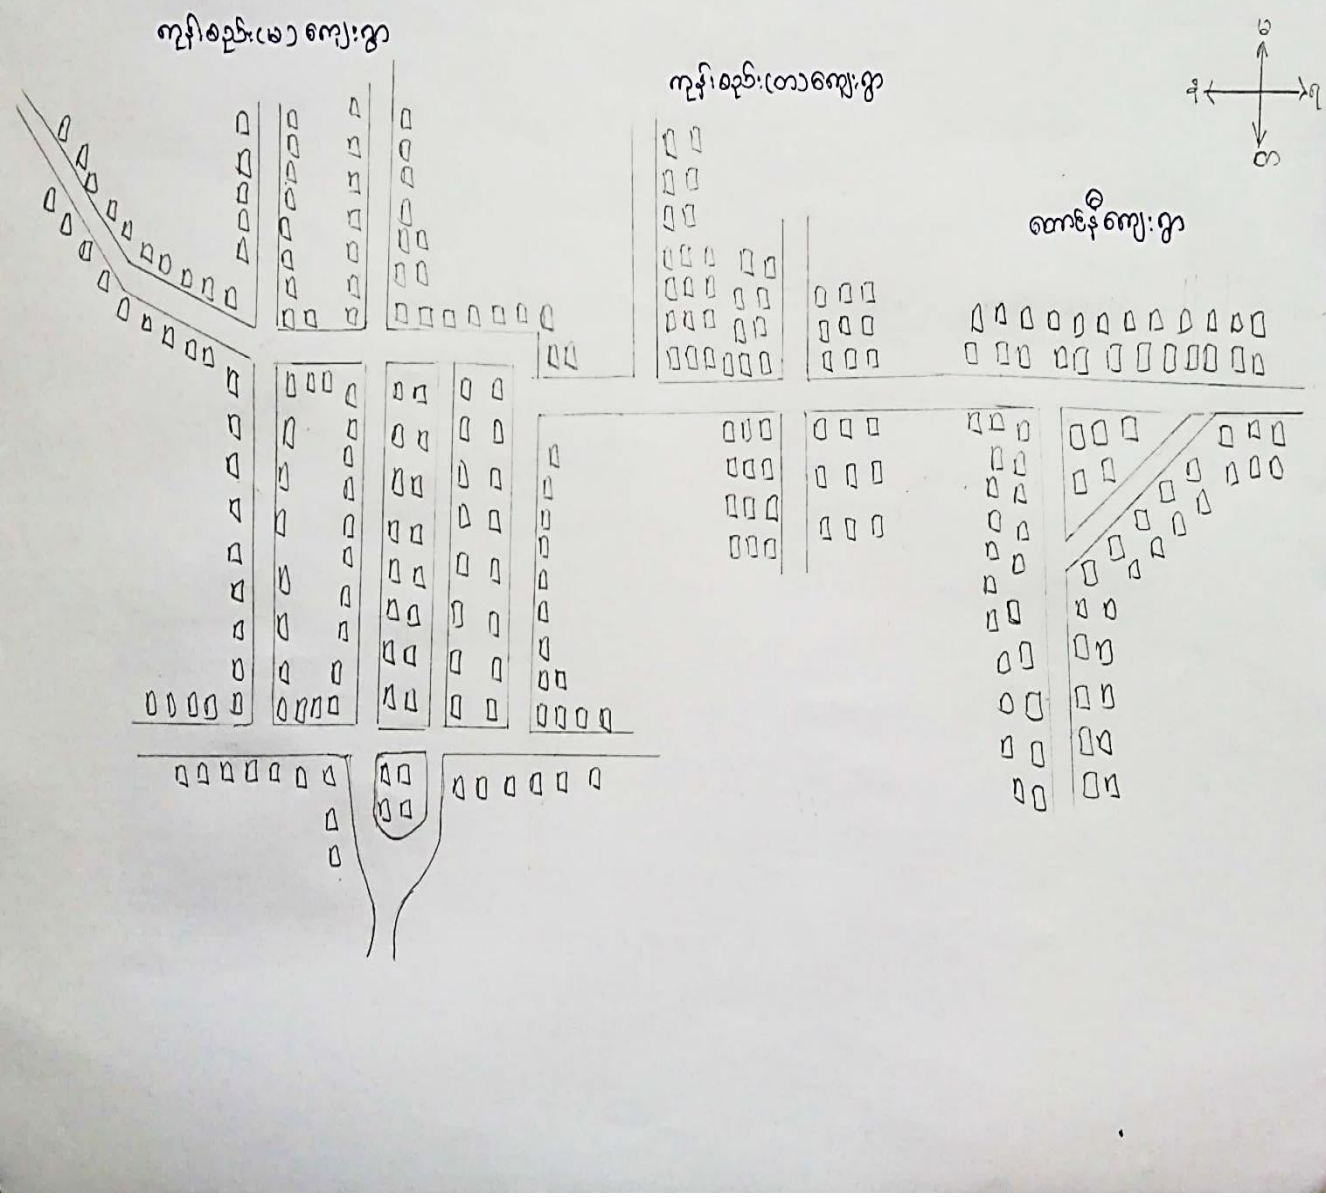 ကုန်းစည်း(မ)ကျေးရွာ
ကုန်းစည်း(တ)ကျေးရွာ
တောင်နီကျေးရွာ
မ
န
ရ
တ